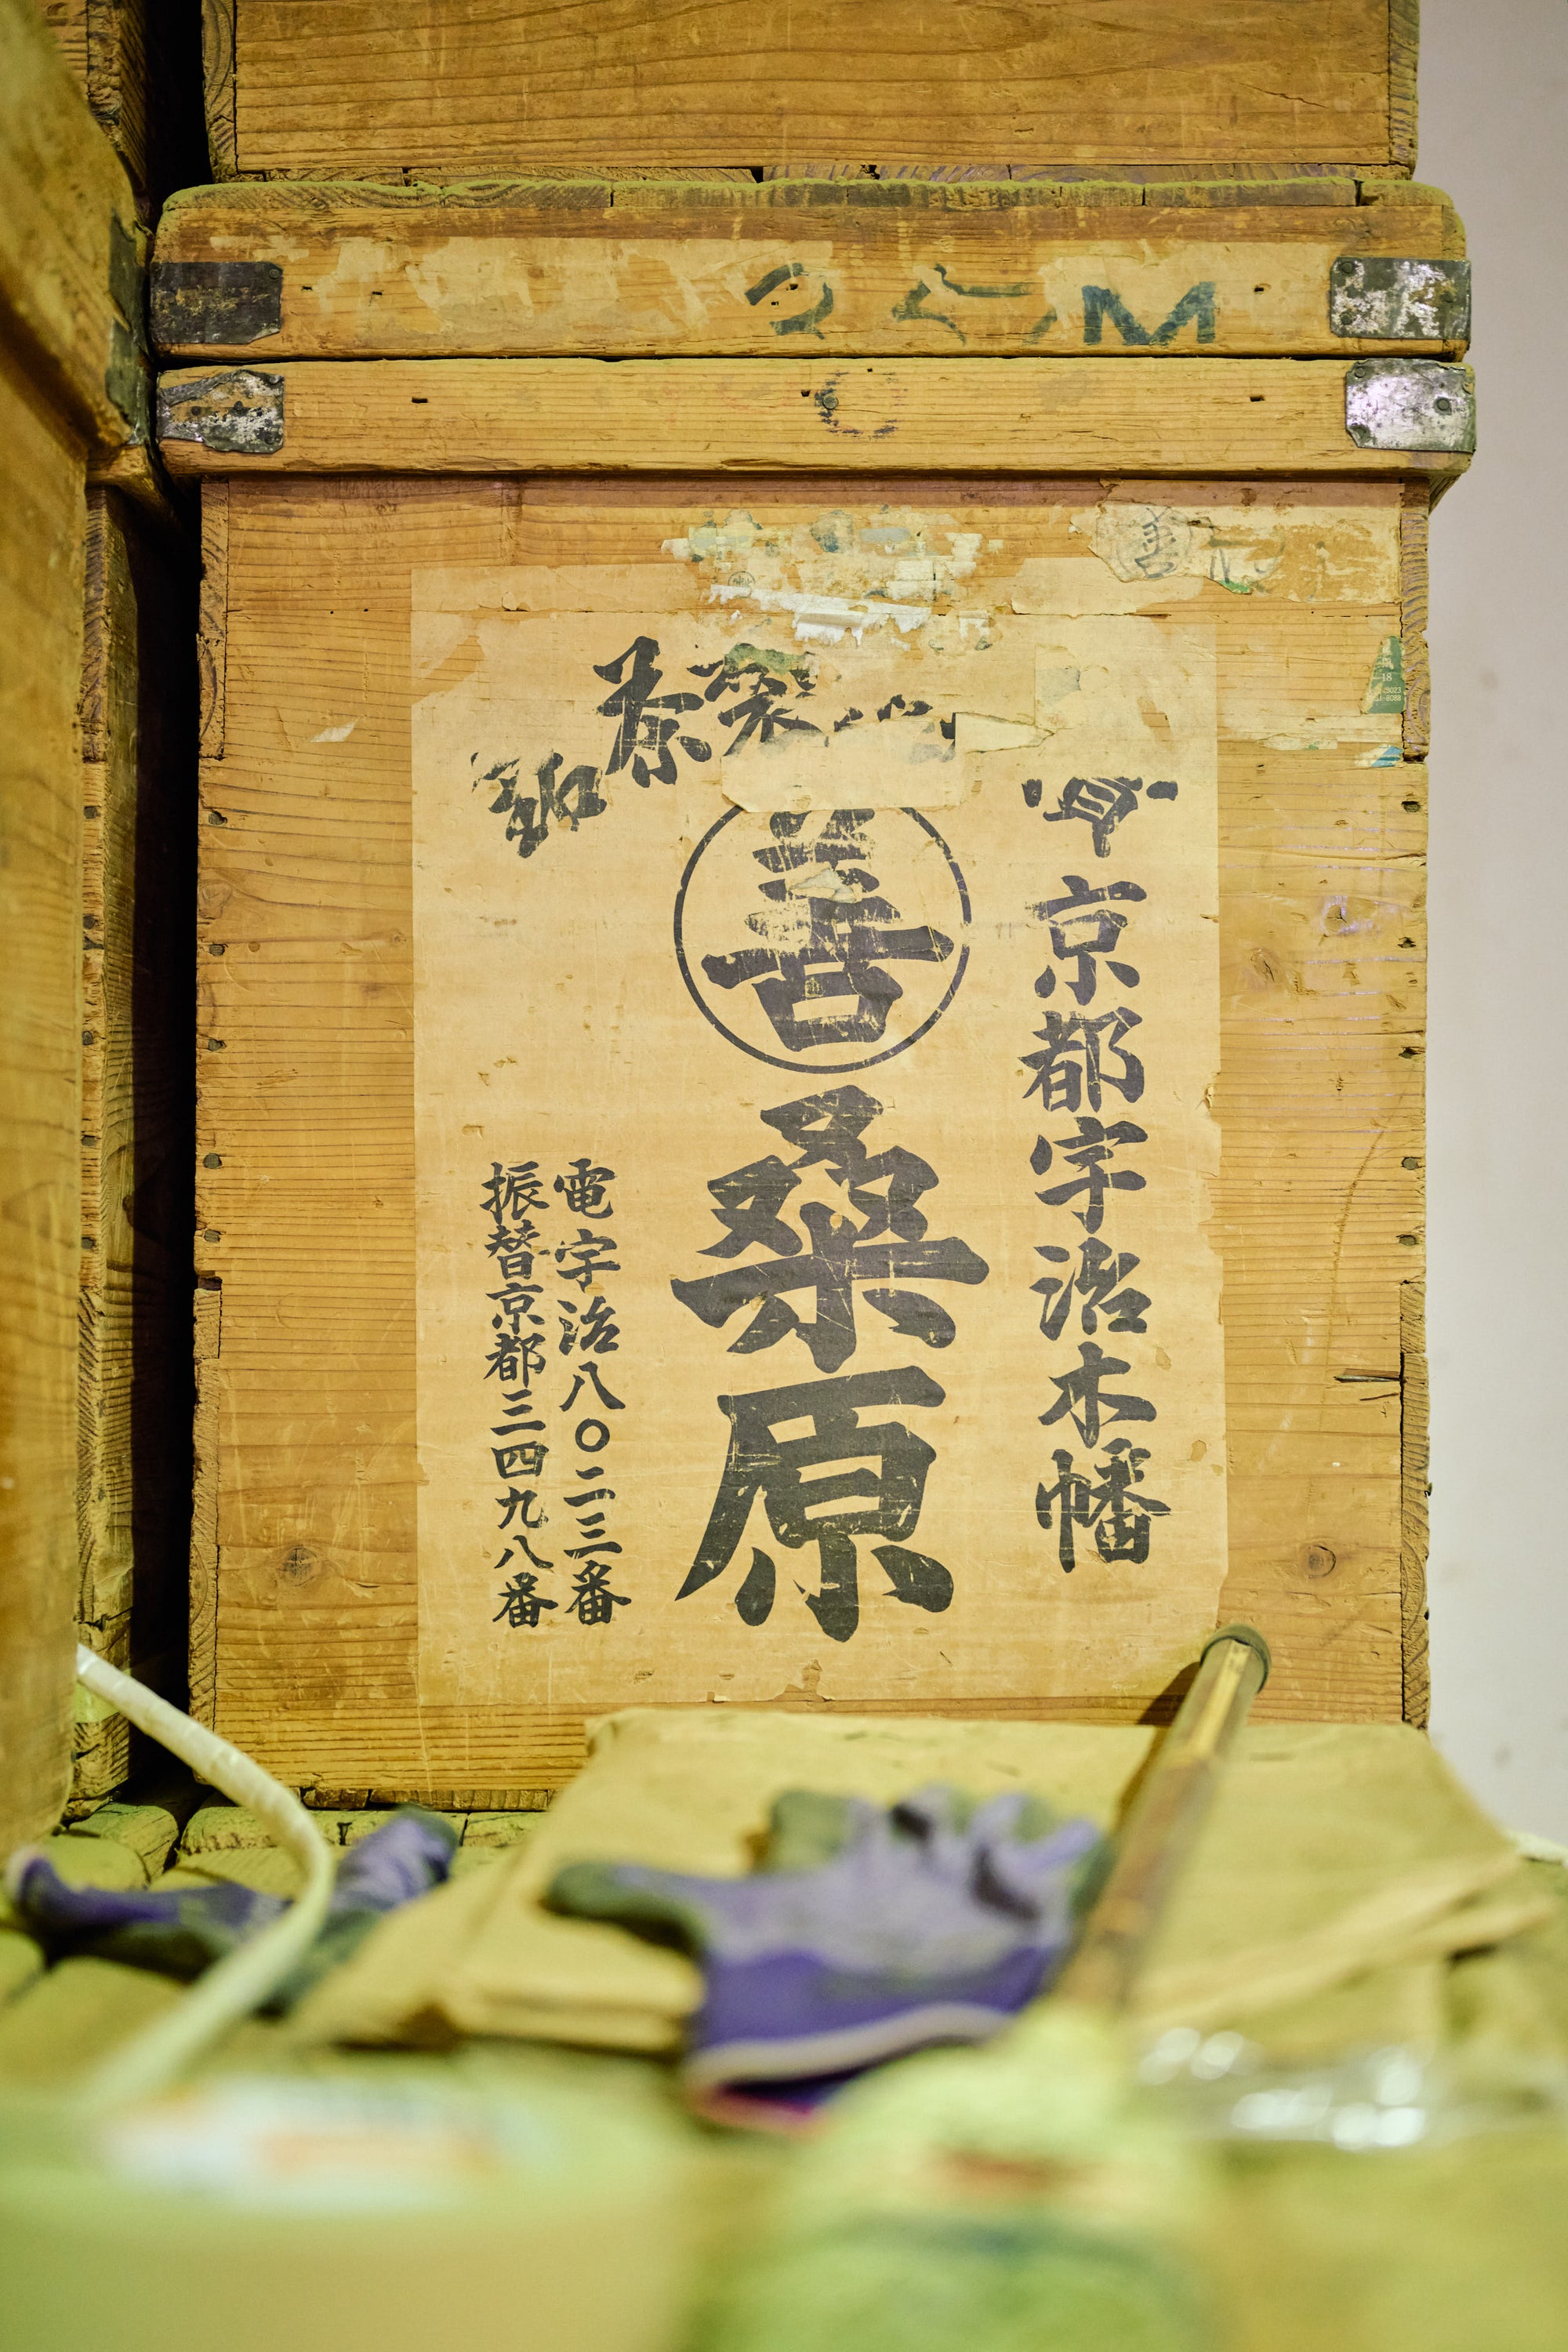 M
善
茶製
京都宇治木幡
善
桑原
電宇治八〇二三番
振替京都三四九八番